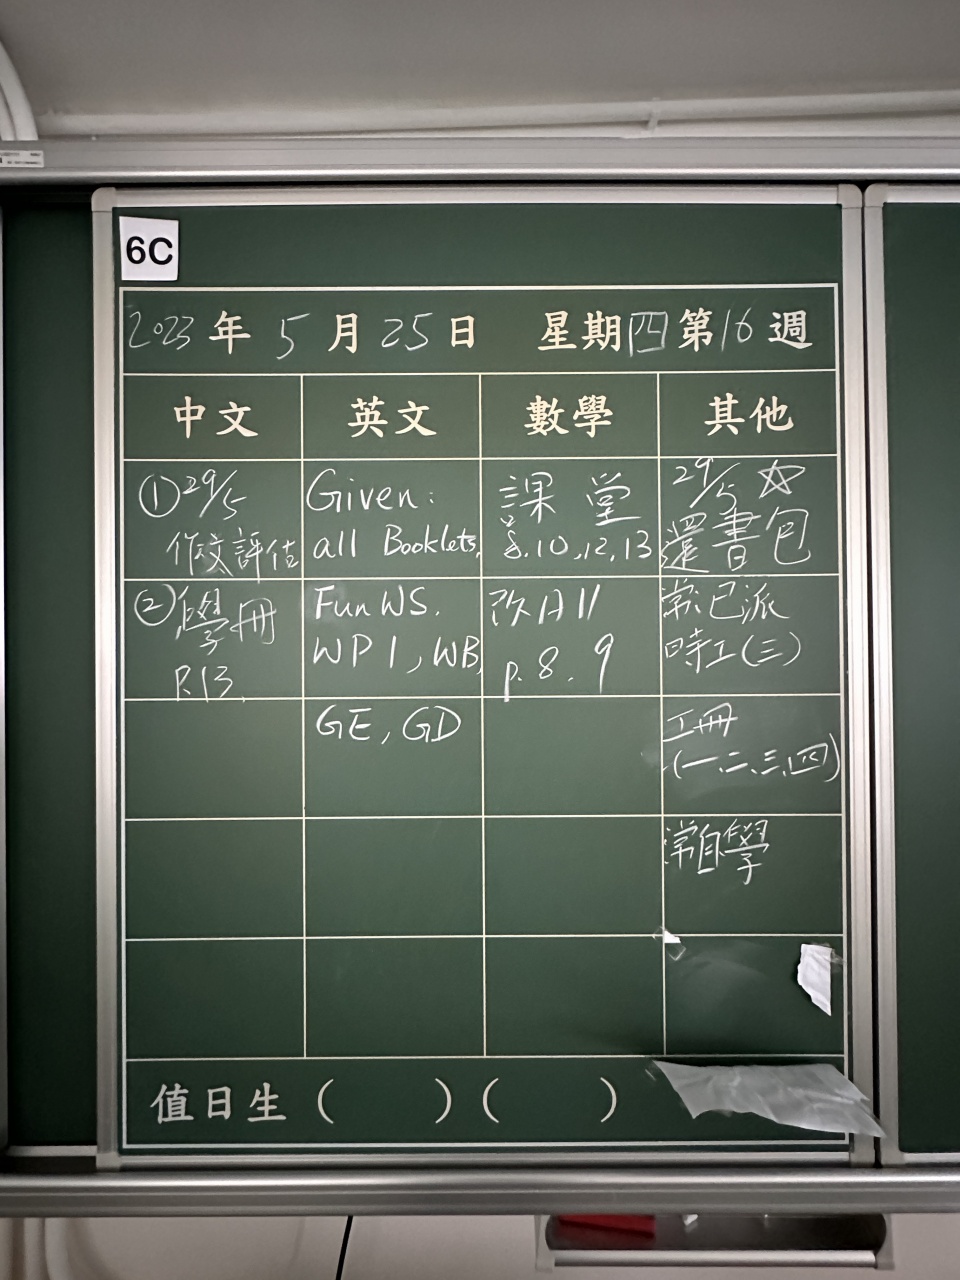 6C
2023年 5月25日 星期四第16週
中文 英文 數學 其他
①29/5
作文評估
②學冊
P.13
Given:
all Booklets,
Fun WS.
WP1, WB
GE, GD
課堂
8.10,12,13
改A11
p.8.9
29/5 ☆
還書包
常:已派
時工(三)
工冊
(一、二、三、四)
常自學
值日生( )( )